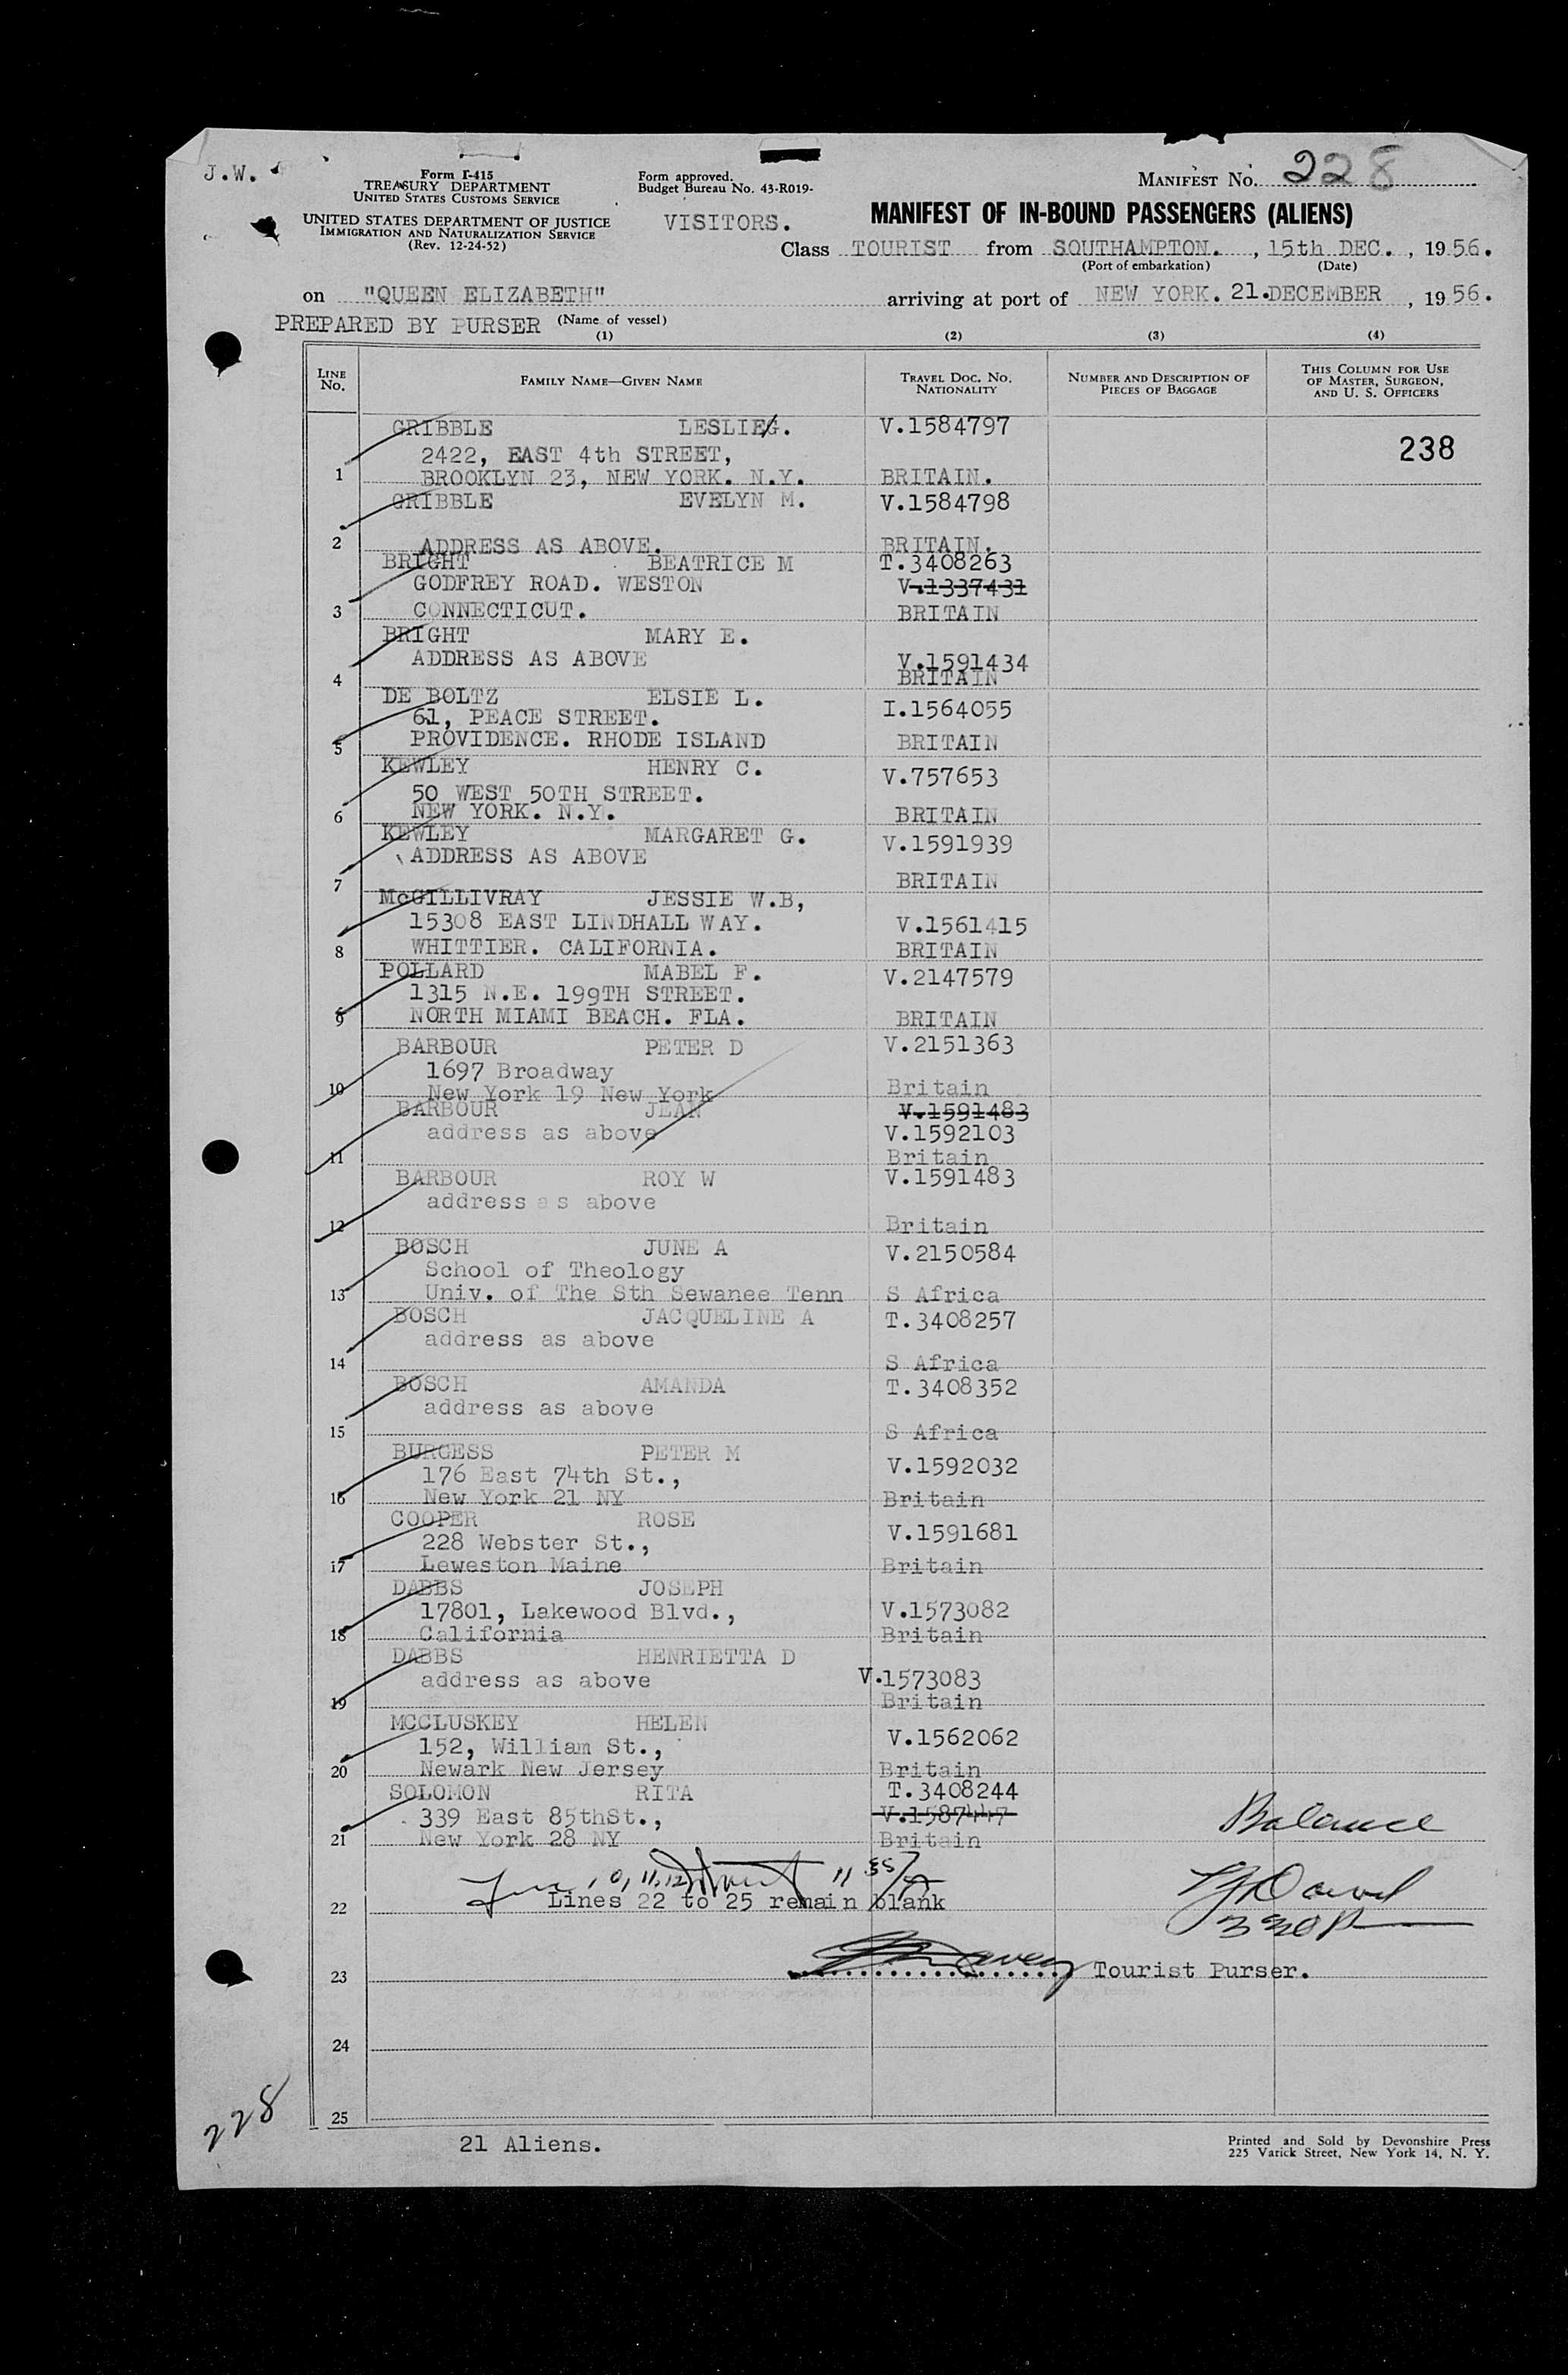 J.W.
Form I-415
TREASURY DEPARTMENT
UNITED STATES CUSTOMS SERVICE
UNITED STATES DEPARTMENT OF JUSTICE
IMMIGRATION AND NATURALIZATION SERVICE
(Rev. 12-24-52)
Form approved.
Budget Bureau No. 43-R019-
VISITORS.
MANIFEST NO. 228
MANIFEST OF IN-BOUND PASSENGERS (ALIENS)
Class TOURIST from SOUTHAMPTON. , 15th DEC. , 1956.
(Port of embarkation) (Date)
on "QUEEN ELIZABETH" arriving at port of NEW YORK. 21.DECEMBER , 1956.
PREPARED BY PURSER (Name of vessel)
(1) (2) (3) (4)
LINE NO. FAMILY NAME—GIVEN NAME TRAVEL DOC. NO. NATIONALITY NUMBER AND DESCRIPTION OF PIECES OF BAGGAGE THIS COLUMN FOR USE OF MASTER, SURGEON, AND U. S. OFFICERS
GRIBBLE LESLIEG. V.1584797
238
2422, EAST 4th STREET,
1 BROOKLYN 23, NEW YORK. N.Y. BRITAIN.
GRIBBLE EVELYN M. V.1584798
2 ADDRESS AS ABOVE. BRITAIN.
BRIGHT BEATRICE M T.3408263
GODFREY ROAD. WESTON V.1337431
3 CONNECTICUT. BRITAIN
BRIGHT MARY E.
ADDRESS AS ABOVE V.1591434
4 BRITAIN
DE BOLTZ ELSIE L. I.1564055
61, PEACE STREET.
5 PROVIDENCE. RHODE ISLAND BRITAIN
KEWLEY HENRY C. V.757653
50 WEST 50TH STREET.
6 NEW YORK. N.Y. BRITAIN
KEWLEY MARGARET G. V.1591939
ADDRESS AS ABOVE
7 BRITAIN
McGILLIVRAY JESSIE W.B,
15308 EAST LINDHALL WAY. V.1561415
8 WHITTIER. CALIFORNIA. BRITAIN
POLLARD MABEL F. V.2147579
1315 N.E. 199TH STREET.
9 NORTH MIAMI BEACH. FLA. BRITAIN
BARBOUR PETER D V.2151363
1697 Broadway
10 New York 19 New York Britain
BARBOUR JEAN V.1591483
address as above V.1592103
11 Britain
BARBOUR ROY W V.1591483
address as above
12 Britain
BOSCH JUNE A V.2150584
School of Theology
13 Univ. of The Sth Sewanee Tenn S Africa
BOSCH JACQUELINE A T.3408257
address as above
14 S Africa
BOSCH AMANDA T.3408352
address as above
15 S Africa
BURGESS PETER M V.1592032
176 East 74th St.,
16 New York 21 NY Britain
COOPER ROSE V.1591681
228 Webster St.,
17 Leweston Maine Britain
DABBS JOSEPH
17801, Lakewood Blvd., V.1573082
18 California Britain
DABBS HENRIETTA D
address as above V.1573083
19 Britain
MCCLUSKEY HELEN V.1562062
152, William St.,
20 Newark New Jersey Britain
SOLOMON RITA T.3408244
339 East 85thSt., V.1587447
21 New York 28 NY Britain
Balance
22 Lines 22 to 25 remain blank
330P
23 Tourist Purser.
24
25
228
21 Aliens.
Printed and Sold by Devonshire Press
225 Varick Street, New York 14, N. Y.